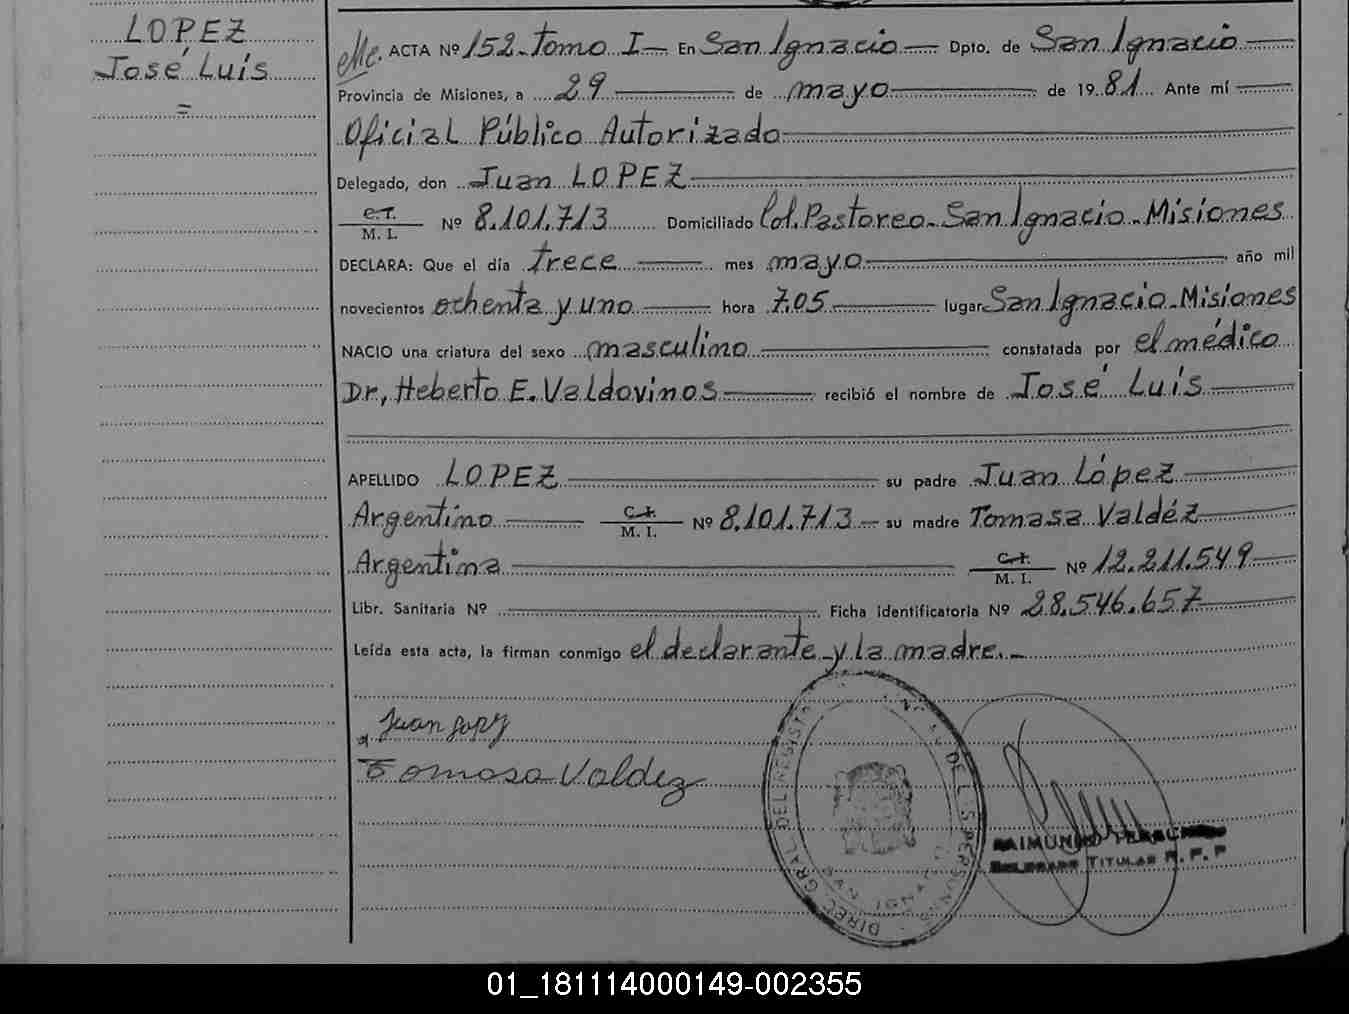 LOPEZ
José Luís
=
ACTA Nº 152 - Tomo I - En San Ignacio - Dpto. de San Ignacio
Provincia de Misiones, a 29 de mayo de 1981 Ante mí
Oficial Público Autorizado
Delegado, don Juan LOPEZ
C.I.
M. I. Nº 8.101.713 Domiciliado Col. Pastoreo - San Ignacio - Misiones
DECLARA: Que el día trece mes mayo año mil
novecientos ochenta y uno hora 7.05 lugar San Ignacio - Misiones
NACIO una criatura del sexo masculino constatada por el médico
Dr, Heberto E. Valdovinos recibió el nombre de José Luís
APELLIDO LOPEZ su padre Juan López
Argentino C.I.
M. I. Nº 8.101.713 - su madre Tomasa Valdéz
Argentina C.I.
M. I. Nº 12.211.549
Libr. Sanitaria Nº Ficha identificatoria Nº 28.546.657
Leída esta acta, la firman conmigo el declarante y la madre.-
Juan Lopez
Tomasa Valdez
DIREC. GRAL DEL REGISTRO DE LAS PERSONAS
SAN IGNACIO
RAIMUNDO
DELEGADO TITULAR R. P. P
01_181114000149-002355